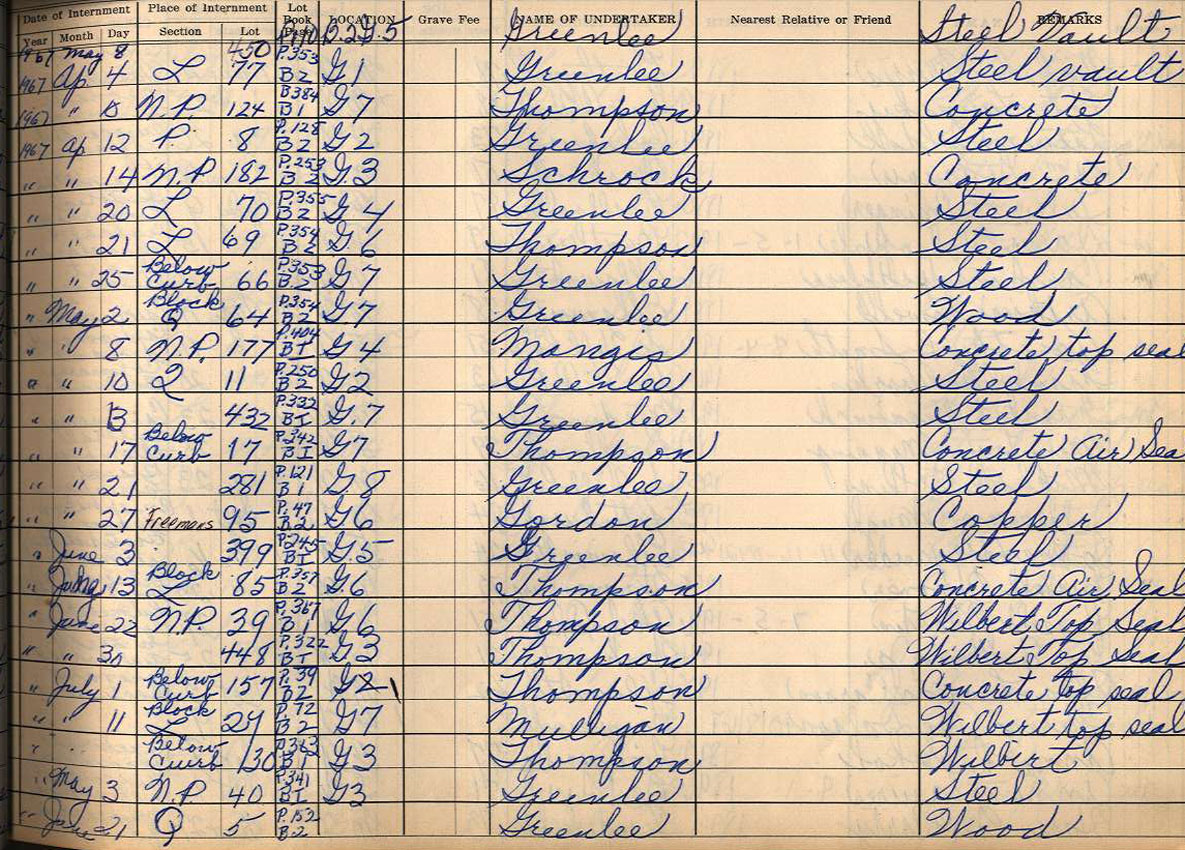 Date of Interment Place of Internment Lot Book Page LOCATION Grave Fee NAME OF UNDERTAKER Nearest Relative or Friend REMARKS
Year Month Day Section Lot
1967 May 8 450 B.2 G.5 Greenlee Steel Vault
1967 Ap. 4 L 77 P.353 B2 G1 Greenlee Steel vault
1967 " N.P. 124 B384 B1 G7 Thompson Concrete
1967 ap 12 P. 8 P.128 B2 G2 Greenlee Steel
" " 14 N.P 182 P.253 B2 G3 Schrock Concrete
" " 20 L 70 P.355 B2 G4 Greenlee Steel
" " 21 L 69 P.354 B2 G.6 Thompson Steel
" " 25 Below Curb 66 P.353 B.2 G7 Greenlee Steel
" May 2 Block Q 64 P.354 B2 G.7 Greenlee Wood
" " 8 N.P. 177 P.404 BI G4 Mangis Concrete top seal
" " 10 Q 11 P.250 B2 G2 Greenlee Steel
" " 13 432 P.332 BI G.7 Greenlee Steel
" " 17 Below Curb 17 P.342 BI G7 Thompson Concrete Air Sea
" " 21 281 P.121 B1 G8 Greenlee Steel
" " 27 Freemans 95 P.47 B.2 G6 Gordon Copper
" June 3 399 P.245 BI G.5 Greenlee Steel
" 13 Block L 85 P.357 B2 G.6 Thompson Concrete Air Seal
" June 22 N.P. 39 P.367 B1 G6 Thompson Wilbert Top Seal
" " 30 448 P.322 BI G3 Thompson Wilbert Top Seal
" July 1 Below Curb 157 P.39 B2 G2 Thompson Concrete top seal
" " 11 Block L 29 P.72 B2 G7 Mulligan Wilbert top seal
" Below Curb 130 P.363 B1 G3 Thompson Wilbert
" May 3 N.P 40 P.341 BI G3 Greenlee Steel
" June 21 Q 5 P.152 B.2 Greenlee Wood